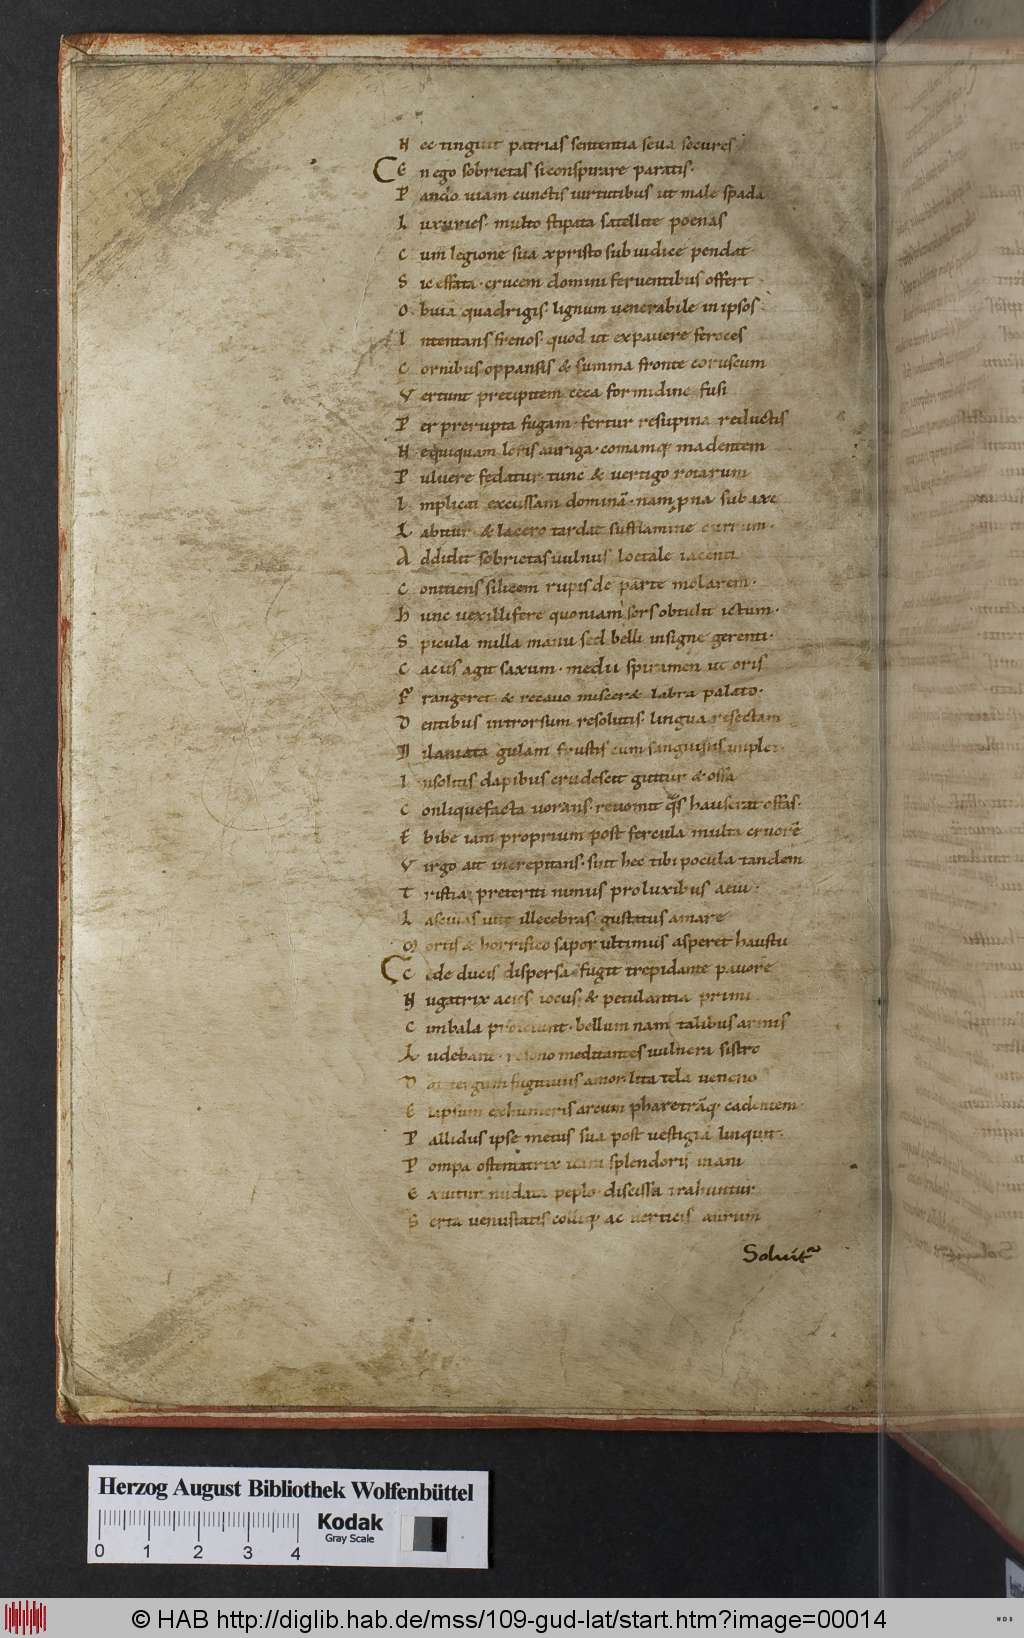 N ec tinguit patrias sententia seua secures
E n ego sobrietas si conspirare paratis·
P ando uiam cunctis uirtutibus ut male spada
L uxuries· multo stipata satellite poenas
C um legione sua xpristo sub iudice pendat
S ic effata· crucem domini feruentibus offert
O buia quadrigis· lignum uenerabile in ipsos·
I ntentans frenos· quod ut expauere feroces
C ornibus oppansis & summa fronte coruscum
V ertunt precipitem ceca formidine fusi
P er prerupta fugam· fertur resupina reductis
N equiquam loris auriga· comamq; madentem
P uluere fędatur· tunc & uertigo rotarum
I mplicat excussam dominā· nam p̱na sub axe
L abitur· & lacero tardat sufflamine currum·
A ddidit sobrietas uulnus loetale iacenti
C oniciens silicem rupis de parte molarem·
H unc uexillifere quoniam sors obtulit ictum·
S picula nulla manu sed belli insigne gerenti·
C acus agit saxum· medii spiramen ut oris
F rangeret & recauo misceret labra palato·
D entibus introrsum resolutis· lingua resectam
D ilaniata gulam frustis cum sanguinis implet·
I nsolitis dapibus crudescit guttur & ossa
C onliquefacta uorans· reuomit q̄s hauserat offas·
E bibe iam proprium post fercula multa cruorē
V irgo ait increpitans· sint hec tibi pocula tandem
T ristia preteriti nimius proluxibus aeui·
L asciuas uite illecebras gustatus amare
M ortis & horrifico sapor ultimus asperet haustu
C ede ducis dispersa fugit trepidante pauore
N ugatrix acies iocus· & petulantia primi
C imbala proiciunt· bellum nam talibus armis
L udebant· resono meditantes uulnera sistro
D at tergum fugitiuus amor lita tela ueneno
E lapsum exhumeris arcum pharetrāq· cadentem·
P allidus ipse metus sua post uestigia linquit·
P ompa ostentatrix uani splendoris inani
E xuitur nudata peplo· discissa trahuntur
S erta uenustatis colliq; ac uerticis aurum
Soluit᷑
Herzog August Bibliothek Wolfenbüttel
Kodak
Gray Scale
0 1 2 3 4
© HAB http://diglib.hab.de/mss/109-gud-lat/start.htm?image=00014